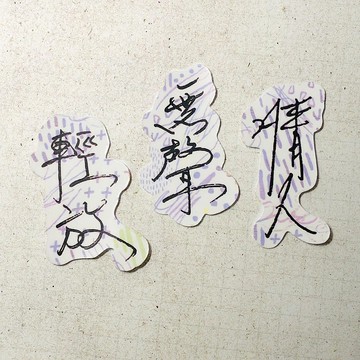 情人
無聲
輕放